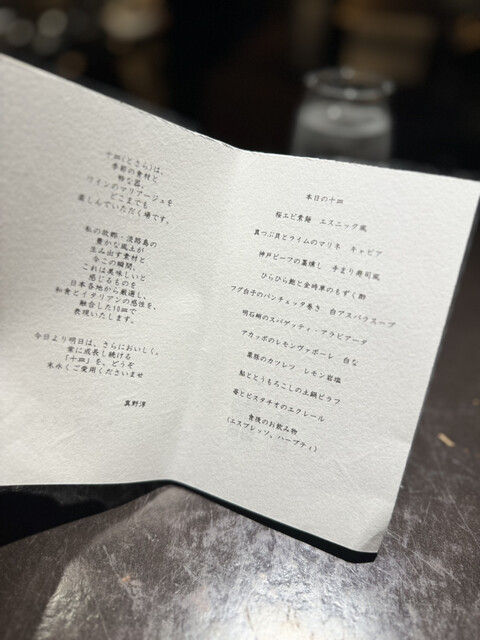 十皿(とさら)は、
季節の食材と
特な器、
ワインのマリアージュを
どこまでも
楽しんでいただく場です。
私の故郷・淡路島の
豊かな風土が
生み出す素材と
今この瞬間、
これは美味しいと
感じるものを
日本各地から厳選し、
和食とイタリアンの感性を、
融合した10皿で
表現いたします。
今日より明日は、さらにおいしく。
常に成長し続ける
「十皿」を、どうぞ
末永くご愛用くださいませ
真野淳
本日の十皿
桜エビ素麺 エスニック風
真つぶ貝とライムのマリネ キャビア
神戸ビーフの藁燻し 手まり寿司風
ひらひら鮑と金時草のもずく酢
フグ白子のパンチェッタ巻き 白アスパラスープ
明石蛸のスパゲッティ・アラビアータ
アカッポのレモンヴァポーレ 白な
栗豚のカツレツ レモン岩塩
鮎ととうもろこしの土鍋ピラフ
苺とピスタチオのエクレール
食後のお飲み物
(エスプレッソ、ハーブティ)